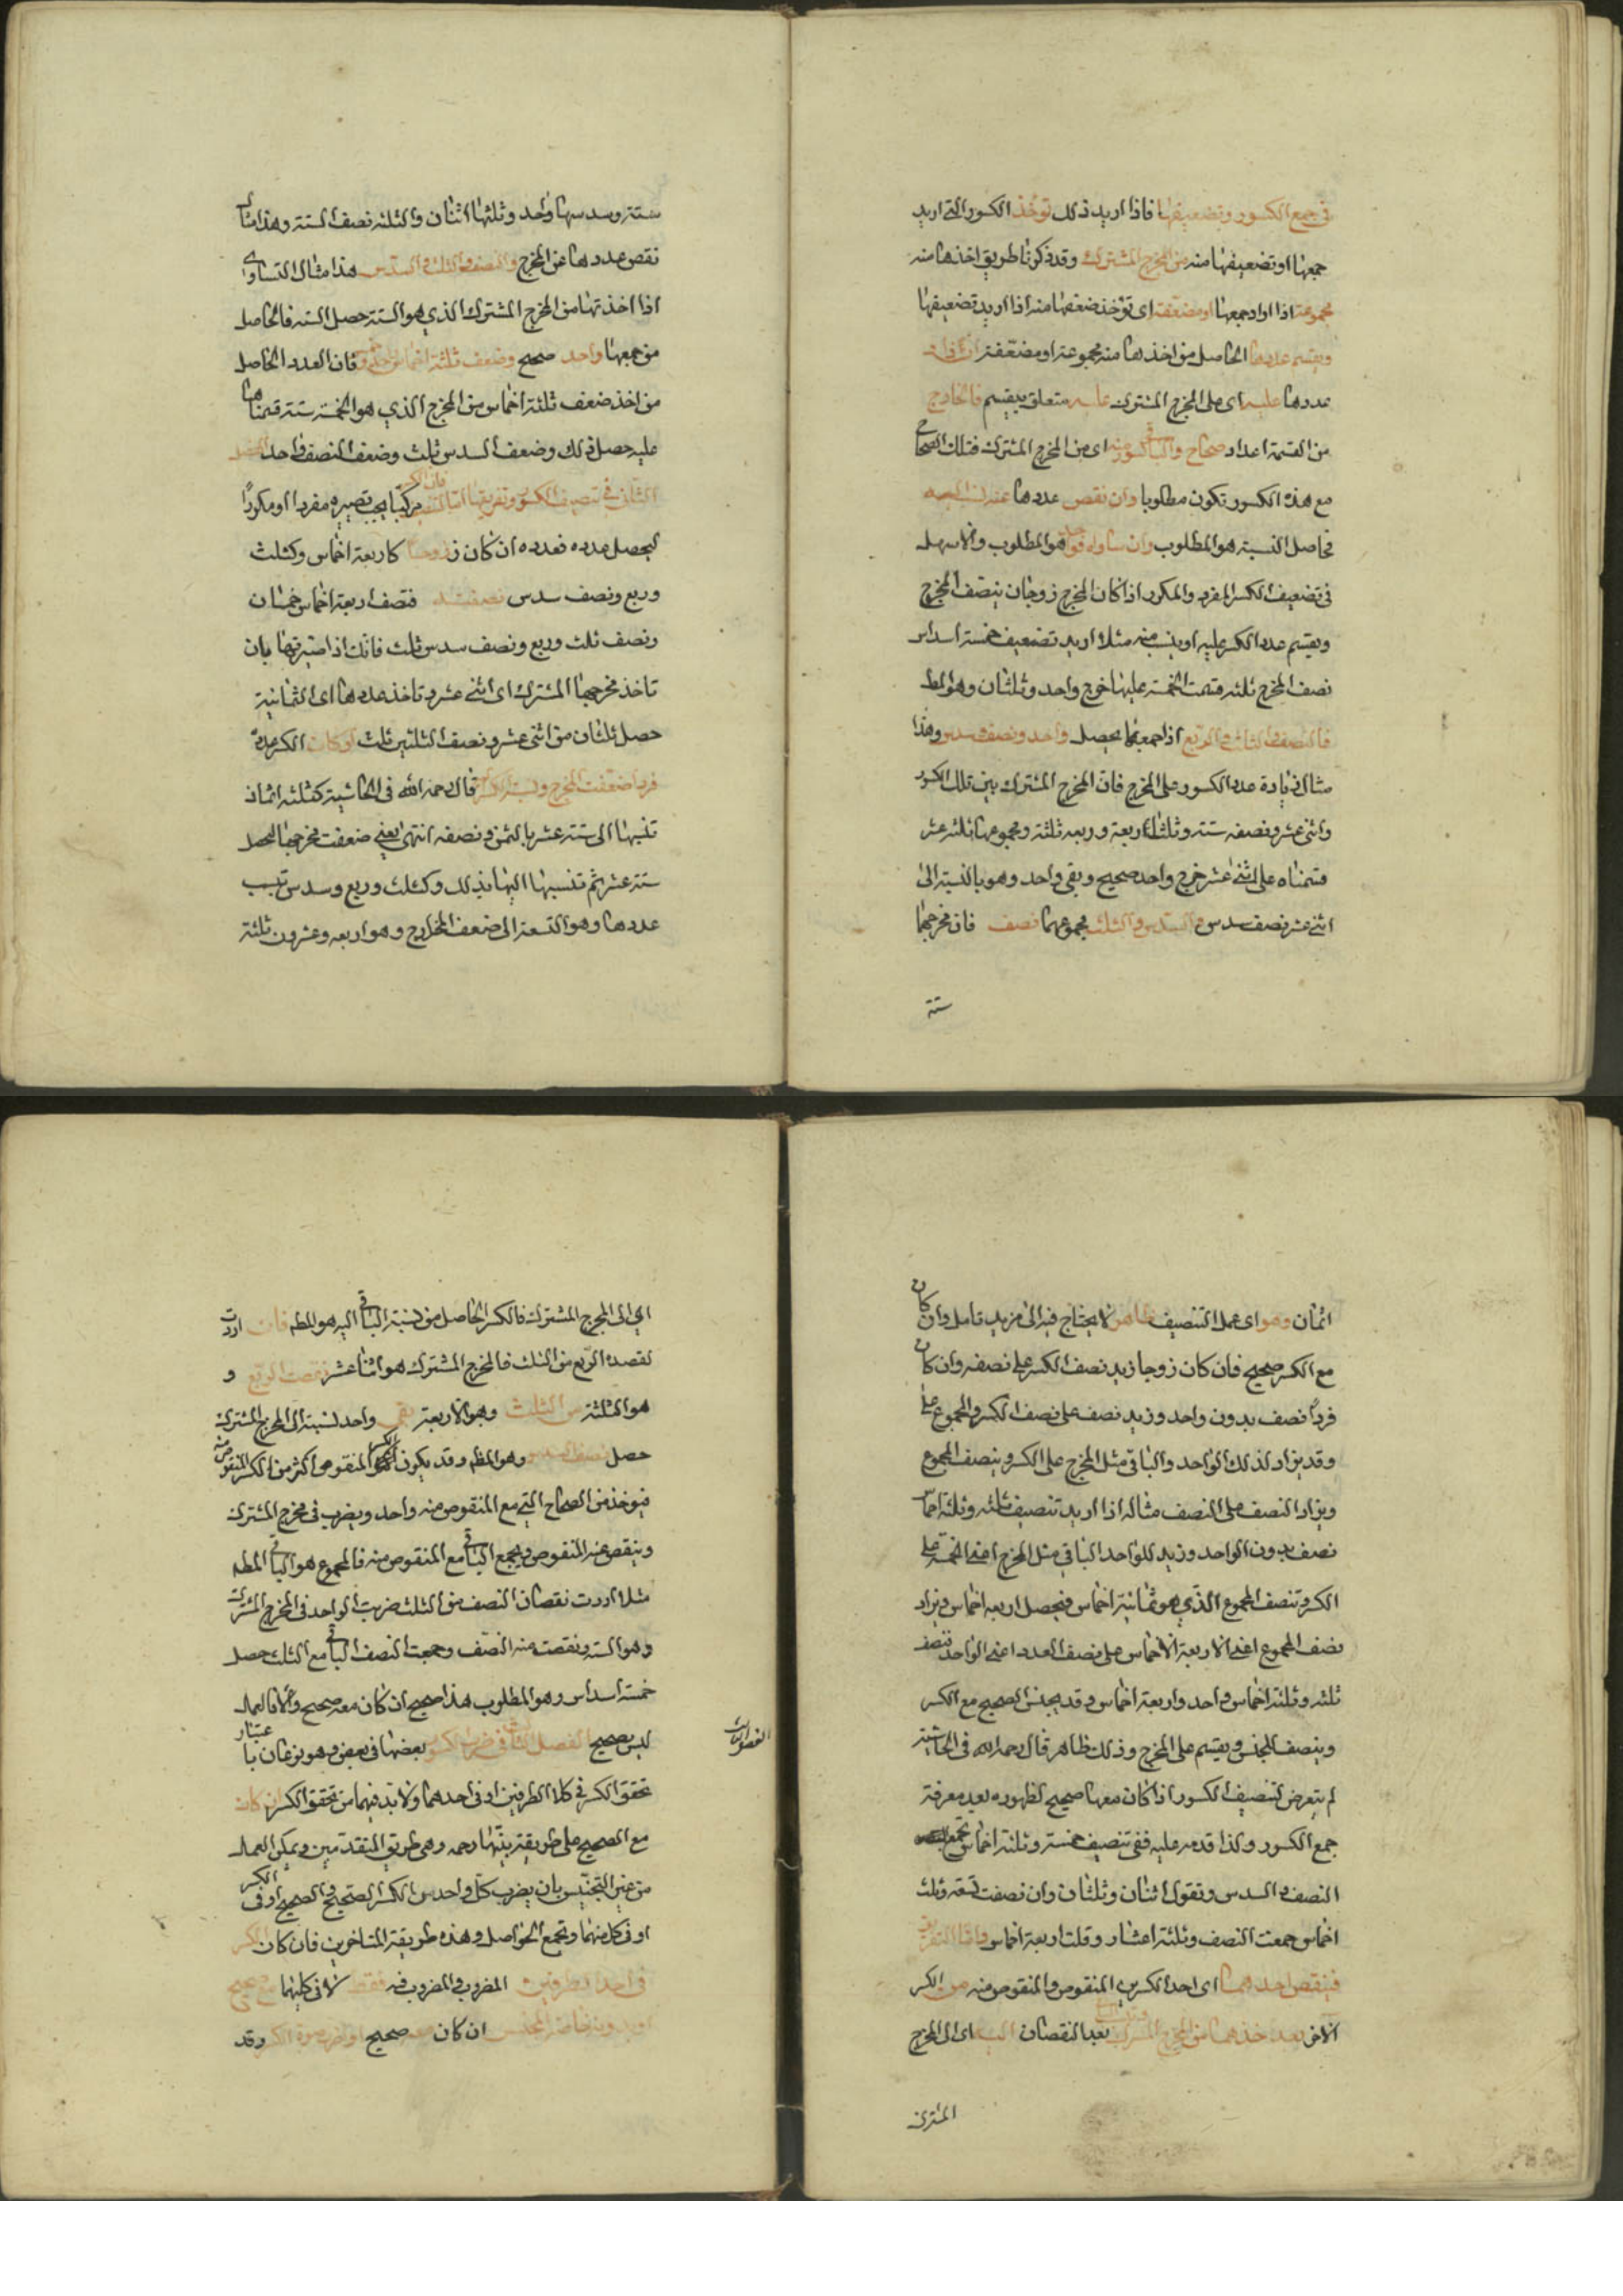 في جمع الكسور وتضعيفها فاذا اريد ذلك توخذ الكسور التي اريد
جمعها او تضعيفها منه من المخرج المشترك وقد ذكرنا طريق اخذها منه
مجموعة اذا اراد جمعها او مضعفة اى توخذ ضعفها منه اذا اريد تضعيفها
ويقسم عددها الحاصل من اخذها منه مجموعة او مضعفة ان زاد
عددها عليه اى على المخرج المشترك عليه متعلق بيقسم فالخارج
من القسمة اعداد صحاح والباقي كسور منه اى من المخرج المشترك فتلك الصحاح
مع هذه الكسور تكون مطلوبا وان نقص عددها عنه نسب اليه
فحاصل النسبة هو المطلوب وان ساواه فواحد هو المطلوب والاسهل
في تضعيف الكسر المفرد والمكرر اذا كان المخرج زوجا ان ينصف المخرج
ويقسم عدد الكسر عليه او ينسب منه مثلا اريد تضعيف خمسة اسداس
نصف المخرج ثلثة قسمت الخمسة عليها خرج واحد وثلثان وهو المط
فالنصف والثلث والربع اذا جمعتها يحصل واحد ونصف سدس وهذا
مثال زيادة عدد الكسور على المخرج فان المخرج المشترك بين تلك الكسور
واثني عشر ونصفه ستة وثلثه اربعة وربعه ثلثة ومجموعها ثلثة عشر
قسمناه على اثني عشر خرج واحد صحيح وبقى واحد وهو بالنسبة الى
اثني عشر نصف سدس والسدس والثلث مجموعهما نصف فان مخرجهما
ستة
ستة وسدسها واحد وثلثها اثنان والثلثة نصف الستة وهذا مثال
نقص عددها عن المخرج والنصف والثلث والسدس هذا مثال التساوى
اذا اخذتها من المخرج المشترك الذي هو الستة حصل الستة فالحاصل
من جمعها واحد صحيح وضعف ثلثة اخماس واحد وخمس فان العدد الحاصل
من اخذ ضعف ثلثة اخماس من المخرج الذي هو الخمسة ستة قسمناها
عليه حصل ذلك وضعف السدس ثلث وضعف النصف واحد الفصل
الثاني في تنصيف الكسور وتفريقها اما التنصيف فان كان الكسر مركبا يجب تصييره مفردا او مكررا
ليحصل عدده فعدده ان كان زوجا كاربعة اخماس وكثلث
وربع ونصف سدس نصفته فنصف اربعة اخماس خمسان
ونصف ثلث وربع ونصف سدس ثلث فانك اذا صيرتها بان
تاخذ مخرجها المشترك اى اثني عشر وتاخذ عددها اى الثمانية
حصل ثلثان من اثني عشر ونصف الثلثين ثلث او كان الكسر عدده
فردا ضعفت المخرج ونسبت الكسر اليه قال رحمه الله في الحاشية كثلثة اثمان
تنسبها الى ستة عشر بالثمن ونصفه انتهى يعني ضعفت مخرجها ليحصل
ستة عشر ثم تنسبها اليها بذلك وكثلث وربع وسدس تنسب
عددها وهو التسعة الى ضعف المخارج وهو اربعة وعشرون ثلثة
اثمان وهو اى عمل التنصيف ظاهر لا يحتاج فيه الى مزيد تامل وان كان
مع الكسر صحيح فان كان زوجا زيد نصف الكسر على نصفه وان كان
فردا نصف بدون واحد وزيد نصفه على نصف الكسر والمجموع على
وقد يزاد لذلك الواحد والباقي مثل المخرج على الكسر وينصف المجموع
ويزاد النصف على النصف مثاله اذا اريد تنصيف ثلثة وثلثة اخماس
نصف بدون الواحد وزيد للواحد الباقي مثل المخرج اعني الخمسة على
الكسر وتنصف المجموع الذي هو ثمانية اخماس فيحصل اربعة اخماس ويزاد
نصف المجموع اعني الاربعة الاخماس على نصف العدد اعني الواحد فنصف
ثلثة وثلثة اخماس واحد واربعة اخماس وقد يجنس الصحيح مع الكسر
وينصف المجنس ويقسم على المخرج وذلك ظاهر قال رحمه الله في الحاشية
لم يتعرض لتنصيف الكسور اذا كان معها صحيح لظهوره بعد معرفة
جمع الكسور ولذا قدمه عليه ففي تنصيف خمسة وثلثة اخماس تجمع
النصف والسدس وتقول اثنان وثلثان وان نصفت تسعة وثلث
اخماس جمعت النصف وثلثة اعشار وقلت اربعة اخماس واما التفريق
فينقص احدهما اى احد الكسرين المنقوص والمنقوص منه من الكسر
الاخر بعد اخذهما من المخرج المشترك وينسب الباقي بعد النقصان اليه اى الى المخرج
المشترك
اي الى المخرج المشترك فالكسر الحاصل من نسبة الباقي اليه هو المط فان اردت
نقصد الربع من الثلث فالمخرج المشترك هو اثنا عشر نقصت الربع و
هو الثلثة من الثلث وهو الاربعة بقى واحد نسبته الى المخرج المشترك
حصل نصف سدس وهو المط وقد يكون الكسر المنقوص اكثر من الكسر المنقوص منه
فيوخذ من الصحاح التي مع المنقوص منه واحد ويضرب في مخرج المشترك
وينقص عنه المنقوص ويجمع الباقي مع المنقوص منه فالمجموع هو الباقي المط
مثلا اردت نقصان النصف من الثلث ضربت الواحد في المخرج المشترك
وهو الستة ونقصت منه النصف وجمعت النصف الباقي مع الثلث حصل
خمسة اسداس وهو المطلوب هذا صحيح ان كان معه صحيح والا فالعمل
ليس بصحيح الفصل الثالث في ضرب الكسور بعضها في بعض وهو نوعان باعتبار
الفصل الثالث
تحقق الكسر في كلا الطرفين او في احدهما ولا بد فيهما من تحقق الكسر ان كان
مع الصحيح على طريقة بينها رحمه وهي طريق المتقدمين ويمكن العمل
من غير التجنيس بان يضرب كل واحد من الكسر الصحيح والصحيح او في الكسر
او في كل منهما ويجمع الحواصل وهذه طريقة المتاخرين فان كان الكسر
في احد الطرفين المضروب والمضروب فيه فقط لا في كليهما مع صحيح
او بدونه فاضرب المجنس ان كان معه صحيح او صورة الكسر وقد